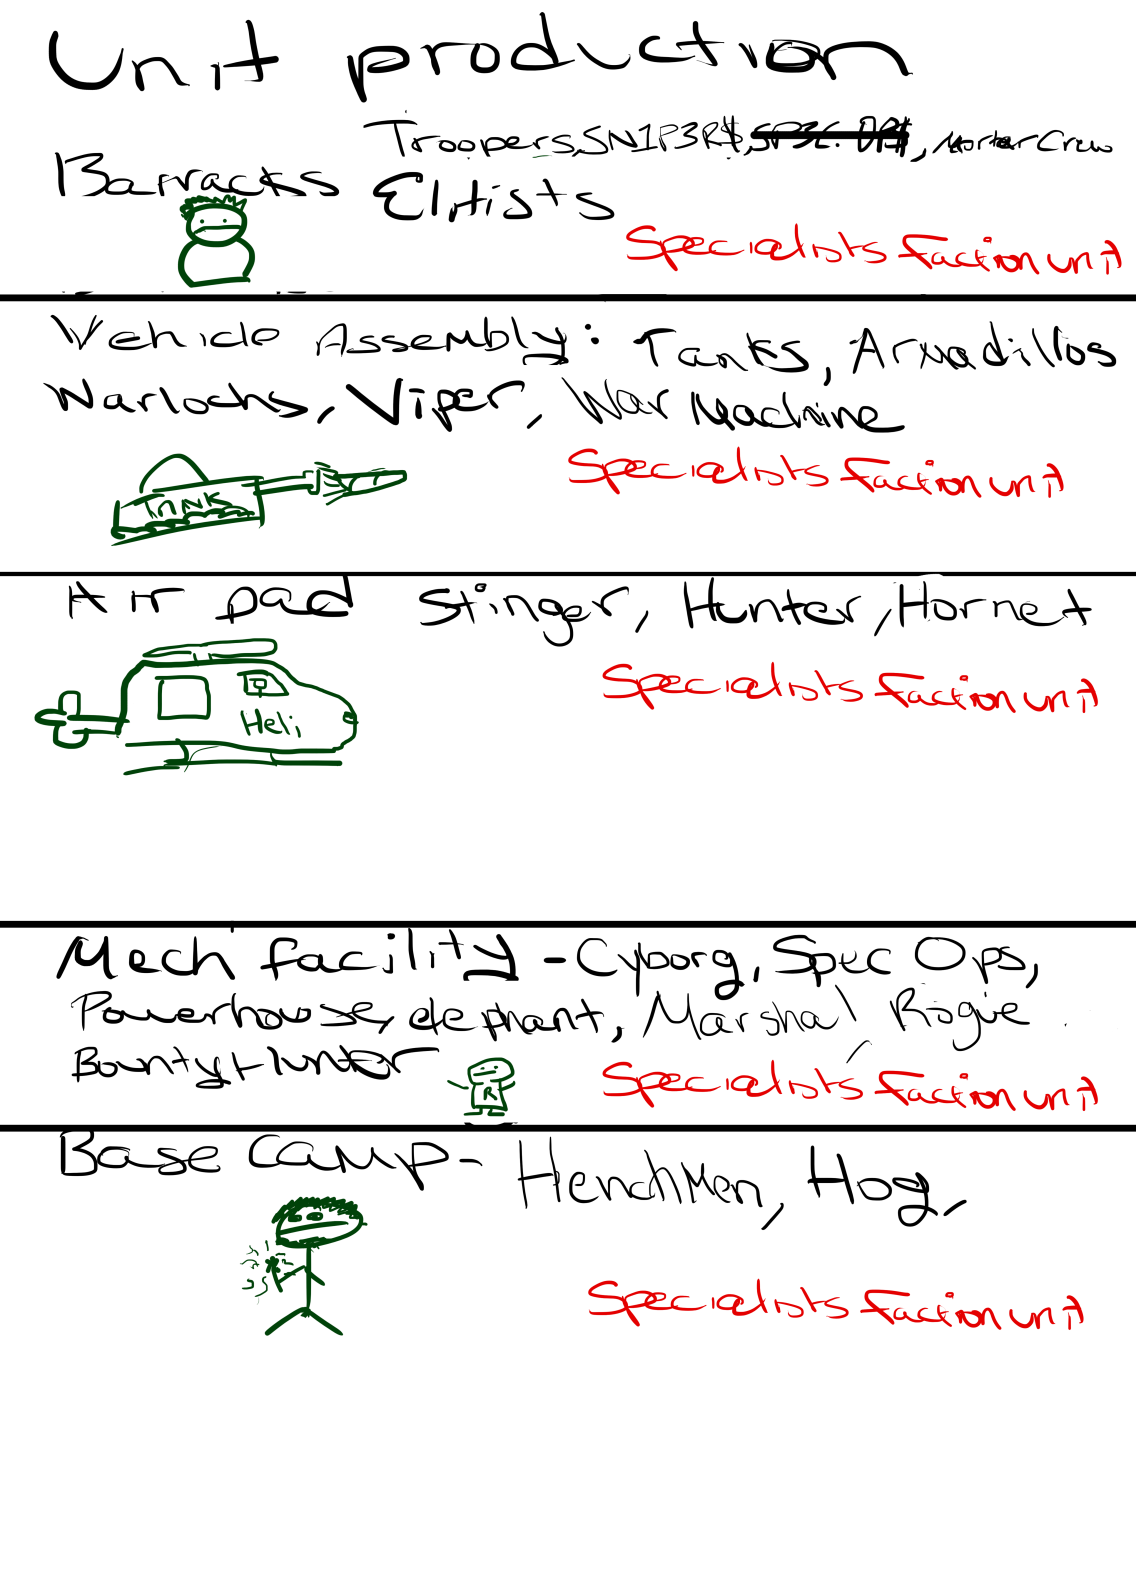 Unit production
Troopers, SN1P3R$, SP3C. OP$, Morter Crew
Barracks Elitists
Specialists Faction unit
Vehicle Assembly: Tanks, Armadillos
Warlocks, Viper, War Machine
Specialists Faction unit
TANK
Air pad Stinger, Hunter, Hornet
Specialists Faction unit
Heli
Mech facility - Cyborg, Spec Ops,
Powerhouse, elephant, Marshal, Rogue
Bounty Hunter
R
Specialists Faction unit
Base camp - Henchmen, Hog,
Specialists Faction unit